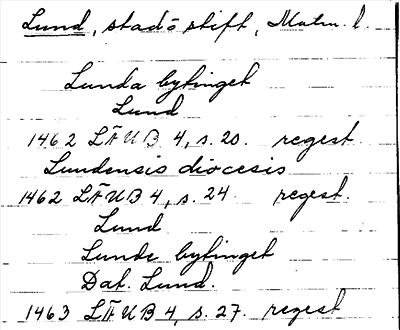 Lund, stad o stift, Malm. l.
Lunda bytinget
Lund
1462 LÄUB 4, s. 20. regest.
Lundensis diocesis
1462 LÄUB 4, s. 24 regest.
Lund
Lunde bytinget
Dat. Lund.
1463 LÄUB 4, s. 27. regest